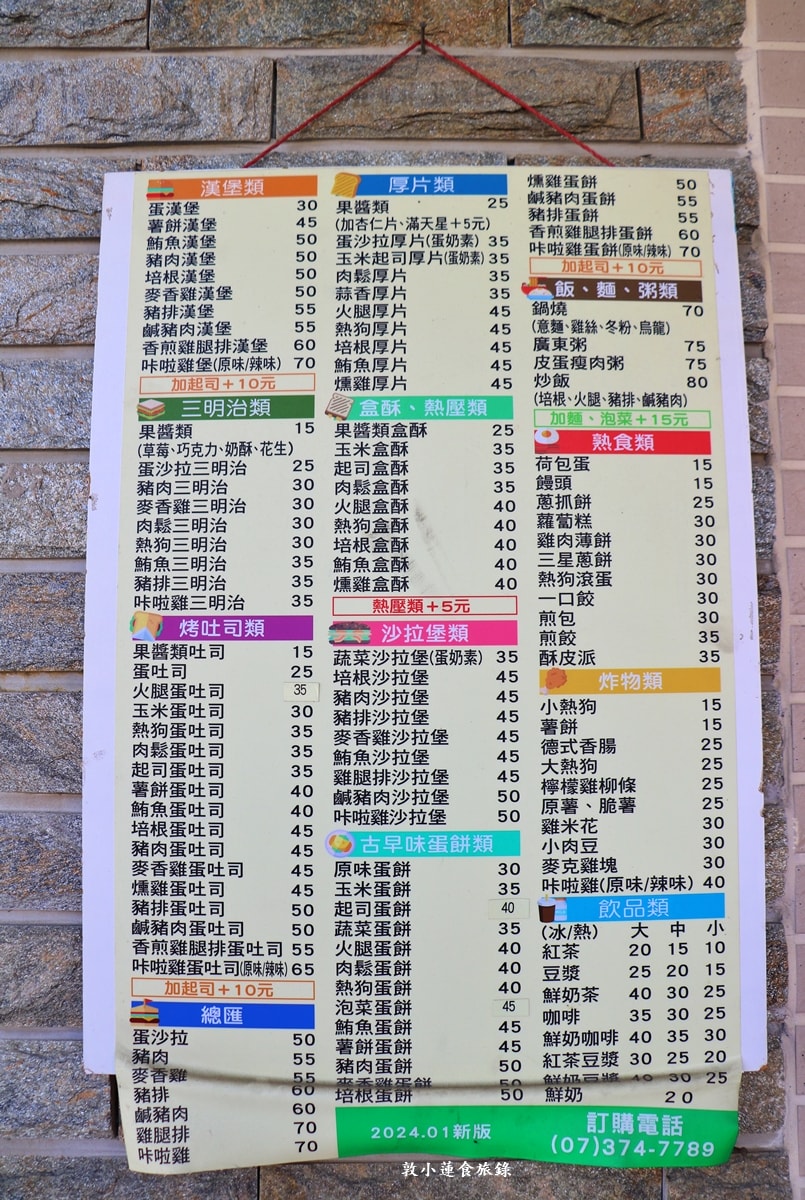 漢堡類
蛋漢堡 30
薯餅漢堡 45
鮪魚漢堡 50
豬肉漢堡 50
培根漢堡 50
麥香雞漢堡 50
豬排漢堡 55
鹹豬肉漢堡 55
香煎雞腿排漢堡 60
咔啦雞堡(原味/辣味) 70
加起司+10元
三明治類
果醬類 15
(草莓、巧克力、奶酥、花生)
蛋沙拉三明治 25
豬肉三明治 30
麥香雞三明治 30
肉鬆三明治 30
熱狗三明治 30
鮪魚三明治 35
豬排三明治 35
咔啦雞三明治 35
烤吐司類
果醬類吐司 15
蛋吐司 25
火腿蛋吐司 35
玉米蛋吐司 30
熱狗蛋吐司 35
肉鬆蛋吐司 35
起司蛋吐司 35
薯餅蛋吐司 40
鮪魚蛋吐司 40
培根蛋吐司 45
豬肉蛋吐司 45
麥香雞蛋吐司 45
燻雞蛋吐司 45
豬排蛋吐司 50
鹹豬肉蛋吐司 50
香煎雞腿排蛋吐司 55
咔啦雞蛋吐司(原味/辣味) 65
加起司+10元
總匯
蛋沙拉 50
豬肉 55
麥香雞 55
豬排 60
鹹豬肉 60
雞腿排 70
咔啦雞 70
厚片類
果醬類 25
(加杏仁片、滿天星+5元)
蛋沙拉厚片(蛋奶素) 35
玉米起司厚片(蛋奶素) 35
肉鬆厚片 35
蒜香厚片 35
火腿厚片 45
熱狗厚片 45
培根厚片 45
鮪魚厚片 45
燻雞厚片 45
盒酥、熱壓類
果醬類盒酥 25
玉米盒酥 35
起司盒酥 35
肉鬆盒酥 35
火腿盒酥 40
熱狗盒酥 40
培根盒酥 40
鮪魚盒酥 40
燻雞盒酥 40
熱壓類+5元
沙拉堡類
蔬菜沙拉堡(蛋奶素) 35
培根沙拉堡 45
豬肉沙拉堡 45
豬排沙拉堡 45
麥香雞沙拉堡 45
鮪魚沙拉堡 45
雞腿排沙拉堡 45
鹹豬肉沙拉堡 50
咔啦雞沙拉堡 50
古早味蛋餅類
原味蛋餅 30
玉米蛋餅 35
起司蛋餅 40
蔬菜蛋餅 35
火腿蛋餅 40
肉鬆蛋餅 40
熱狗蛋餅 40
泡菜蛋餅 45
鮪魚蛋餅 45
薯餅蛋餅 45
豬肉蛋餅 50
麥香雞蛋餅 50
培根蛋餅 50
燻雞蛋餅 50
鹹豬肉蛋餅 55
豬排蛋餅 55
香煎雞腿排蛋餅 60
咔啦雞蛋餅(原味/辣味) 70
加起司+10元
飯、麵、粥類
鍋燒 70
(意麵、雞絲、冬粉、烏龍)
廣東粥 75
皮蛋瘦肉粥 75
炒飯 80
(培根、火腿、豬排、鹹豬肉)
加麵、泡菜+15元
熟食類
荷包蛋 15
饅頭 15
蔥抓餅 25
蘿蔔糕 30
雞肉薄餅 30
三星蔥餅 30
熱狗滾蛋 30
一口餃 30
煎包 30
煎餃 35
酥皮派 35
炸物類
小熱狗 15
薯餅 15
德式香腸 25
大熱狗 25
檸檬雞柳條 25
原薯、脆薯 25
雞米花 30
小肉豆 30
麥克雞塊 30
咔啦雞(原味/辣味) 40
飲品類
(冰/熱) 大 中 小
紅茶 20 15 10
豆漿 25 20 15
鮮奶茶 40 30 25
咖啡 35 30 25
鮮奶咖啡 40 35 30
紅茶豆漿 30 25 20
鮮奶豆漿 40 30 25
鮮奶 20
2024.01新版
訂購電話
(07)374-7789
敦小蓮食旅錄